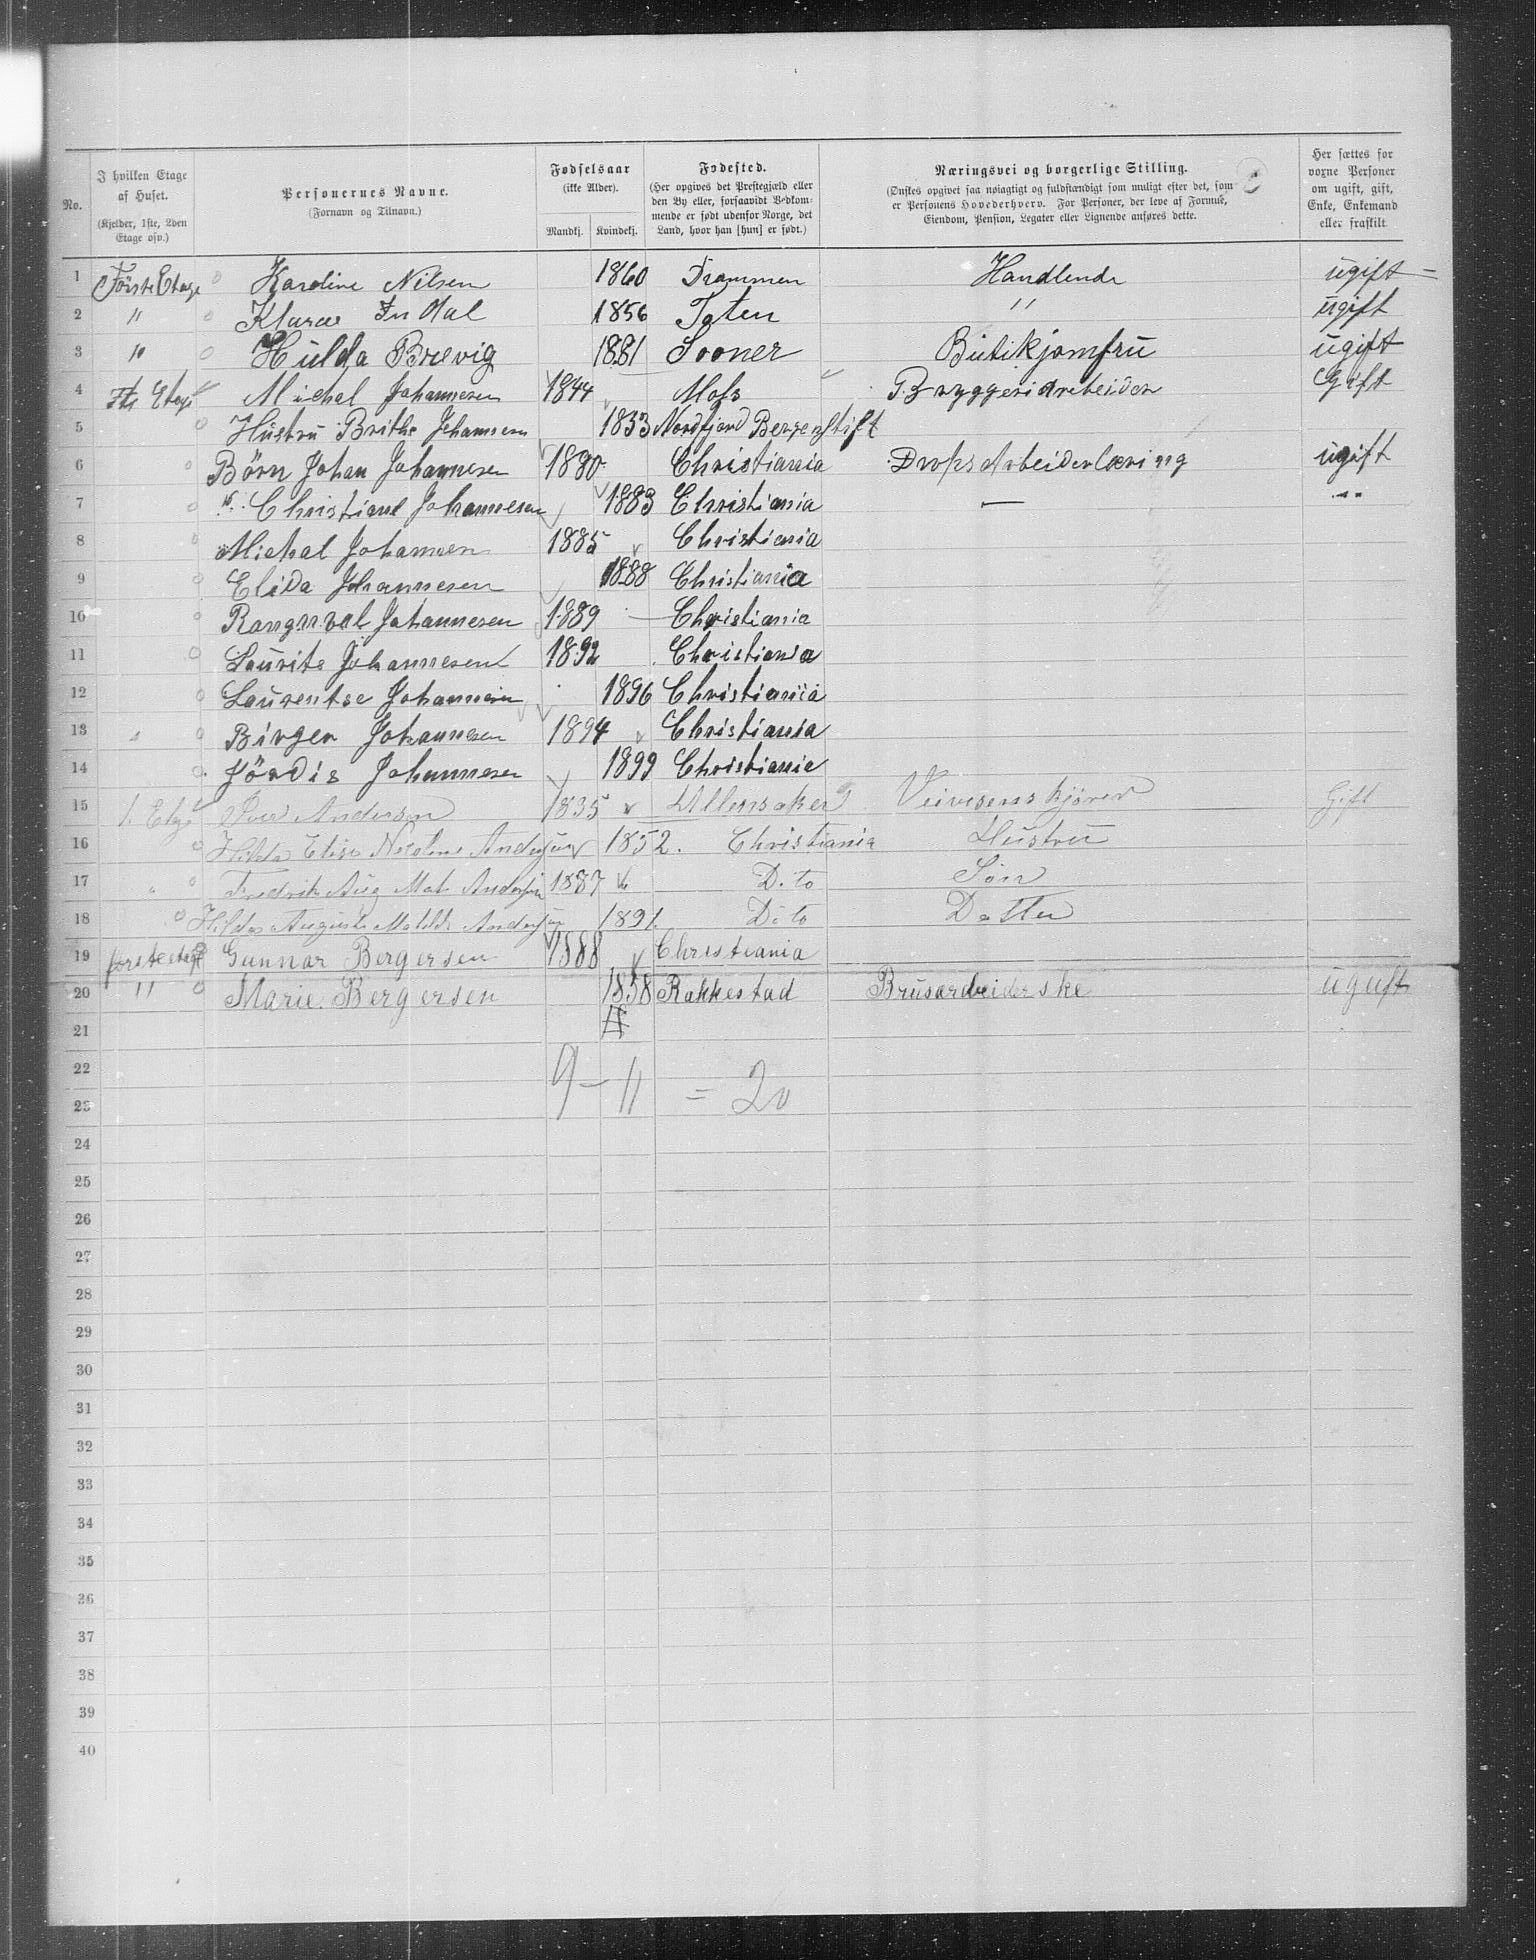 No.
I hvilken Etage af Huset. (Kjelder, 1ste, 2den Etage osv.)
Personernes Navne. (Fornavn og Tilnavn.)
Fødselsaar (ikke Alder). Mandkj. Kvindekj.
Fødested. (Her opgives det Prestegjæld eller den By eller, forsaavidt Vedkommende er født udenfor Norge, det Land, hvor han [hun] er født.)
Næringsvei og borgerlige Stilling. (Ønskes opgivet saa nøiagtigt og fuldstændigt som muligt efter det, som er Personens Hovederhverv. For Personer, der leve af Formue, Eiendom, Pension, Legater eller Lignende anføres dette.
Her sættes for voxne Personer om ugift, gift, Enke, Enkemand eller fraskilt.
1 Förste Etage Karoline Nilsen 1860 Drammen Handlende ugift
2 " Klara In Dal 1856 Toten " ugift
3 " Hulda Brevig 1881 Sooner Butikjomfru ugift
4 1ste Etage Michal Johannesen 1844 Moss Bryggeriarbeider Gift
5 Hustru Brithe Johannesen 1853 Nordfjord Bergenstift
6 Börn Johan Johannesen 1880 Christiania DropsArbeiderlæring ugift
7 " Christiane Johannesen 1883 Christiania — "
8 Michal Johannesen 1885 Christiania
9 Elida Johannesen 1888 Christiania
10 Rangnval Johannesen 1889 Christiania
11 Laurits Johannesen 1892 Christiania
12 Laurentse Johannesen 1896 Christiania
13 Birger Johannesen 1894 Christiania
14 Hjördis Johannesen 1899 Christiania
15 1. Etage Iver Andersen 1835 Ullensaker Veivesenskjörer Gift
16 Hilda Elise Nicoline Andersen 1852. Christiania Hustru
17 " Fredrik Aug Mat Andersen 1887 Dito Sön
18 Hilda Augusta Matilde Andersen 1891 Dito Datter
19 förstestage Gunnar Bergersen 1888 Christiania
20 " Marie Bergersen 1858 Rakkestad Brusarbeiderske ugift
21
22
9 – 11 = 20
23
24
25
26
27
28
29
30
31
32
33
34
35
36
37
38
39
40